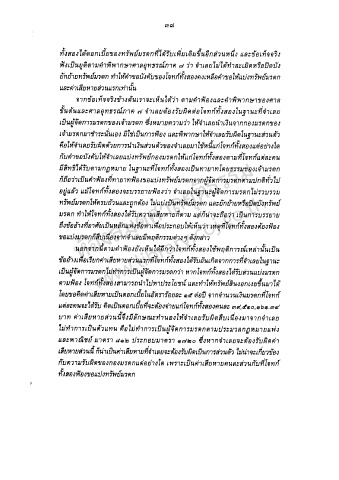 ๓๘
ทั้งสองได้ดอกเบี้ยของทรัพย์มรดกที่ได้รับเพิ่มเติมขึ้นอีกส่วนหนึ่ง และข้อเท็จจริง
ฟังเป็นยุติตามคำพิพากษาศาลอุทธรณ์ภาค ๗ ว่า จำเลยไม่ได้ทำละเมิดหรือปิดบัง
ยักย้ายทรัพย์มรดก ทำให้คำขอบังคับของโจทก์ทั้งสองคงเหลือคำขอให้แบ่งทรัพย์มรดก
และค่าเสียหายส่วนแรกเท่านั้น
จากข้อเท็จจริงข้างต้นเราจะเห็นได้ว่า ตามคำฟ้องและคำพิพากษาของศาล
ชั้นต้นและศาลอุทธรณ์ภาค ๗ จำเลยต้องรับผิดต่อโจทก์ทั้งสองในฐานะที่จำเลย
เป็นผู้จัดการมรดกของเจ้ามรดก ซึ่งหมายความว่า ให้จำเลยนำเงินจากกองมรดกของ
เจ้ามรดกมาชำระนั่นเอง มิใช่เป็นการฟ้อง และพิพากษาให้จำเลยรับผิดในฐานะส่วนตัว
คือให้จำเลยรับผิดด้วยการนำเงินส่วนตัวของจำเลยมาใช้หนี้แก่โจทก์ทั้งสองแต่อย่างใด
กับคำขอบังคับให้จำเลยแบ่งทรัพย์กองมรดกให้แก่โจทก์ทั้งสองตามที่โจทก์แต่ละคน
มีสิทธิได้รับตามกฎหมาย ในฐานะที่โจทก์ทั้งสองเป็นทายาทโดยธรรมของเจ้ามรดก
ก็ถือว่าเป็นคำฟ้องที่ทายาทฟ้องขอแบ่งทรัพย์มรดกจากผู้จัดการมรดกตามปกติทั่วไป
อยู่แล้ว แม้โจทก์ทั้งสองจะบรรยายฟ้องว่า จำเลยในฐานะผู้จัดการมรดกไม่รวบรวม
ทรัพย์มรดกให้ครบถ้วนและถูกต้อง ไม่แบ่งปันทรัพย์มรดก และยักย้ายหรือปิดบังทรัพย์
มรดก ทำให้โจทก์ทั้งสองได้รับความเสียหายก็ตาม แต่ก็น่าจะถือว่า เป็นการบรรยาย
ถึงข้ออ้างที่อาศัยเป็นหลักแห่งข้อหาเพื่อประกอบให้เห็นว่า เหตุที่โจทก์ทั้งสองต้องฟ้อง
ขอแบ่งมรดกก็สืบเนื่องจากจำเลยมีพฤติการณ์ต่าง ๆ ดังกล่าว
นอกจากนี้ตามคำฟ้องยังเห็นได้อีกว่าโจทก์ทั้งสองใช้พฤติการณ์เหล่านั้นเป็น
ข้ออ้างเพื่อเรียกค่าเสียหายส่วนแรกที่โจทก์ทั้งสองได้รับอันเกิดจากการที่จำเลยในฐานะ
เป็นผู้จัดการมรดกไม่ทำการเป็นผู้จัดการมรดกว่า หากโจทก์ทั้งสองได้รับส่วนแบ่งมรดก
ตามฟ้อง โจทก์ทั้งสองสามารถนำไปหาประโยชน์ และทำให้ทรัพย์สินงอกเงยขึ้นมาได้
โดยขอคิดค่าเสียหายเป็นดอกเบี้ยในอัตราร้อยละ ๑๕ ต่อปี จากจำนวนเงินมรดกที่โจทก์
แต่ละคนจะได้รับ คิดเป็นดอกเบี้ยที่จะต้องจ่ายแก่โจทก์ทั้งสองคนละ
บาท ค่าเสียหายส่วนนี้จึงมีลักษณะทำนองให้จำเลยรับผิดสืบเนื่องมาจากจำเลย
ไม่ทำการเป็นตัวแทน คือไม่ทำการเป็นผู้จัดการมรดกตามประมวลกฎหมายแพ่ง
และพาณิชย์ มาตรา ๘๑๒ ประกอบมาตรา ๑๗๒๐ ซึ่งหากจำเลยจะต้องรับผิดค่า
เสียหายส่วนนี้ ก็น่าเป็นค่าเสียหายที่จำเลยจะต้องรับผิดเป็นการส่วนตัว ไม่น่าจะเกี่ยวข้อง
กับความรับผิดของกองมรดกแต่อย่างใด เพราะเป็นค่าเสียหายคนละส่วนกับที่โจทก์
ทั้งสองฟ้องขอแบ่งทรัพย์มรดก